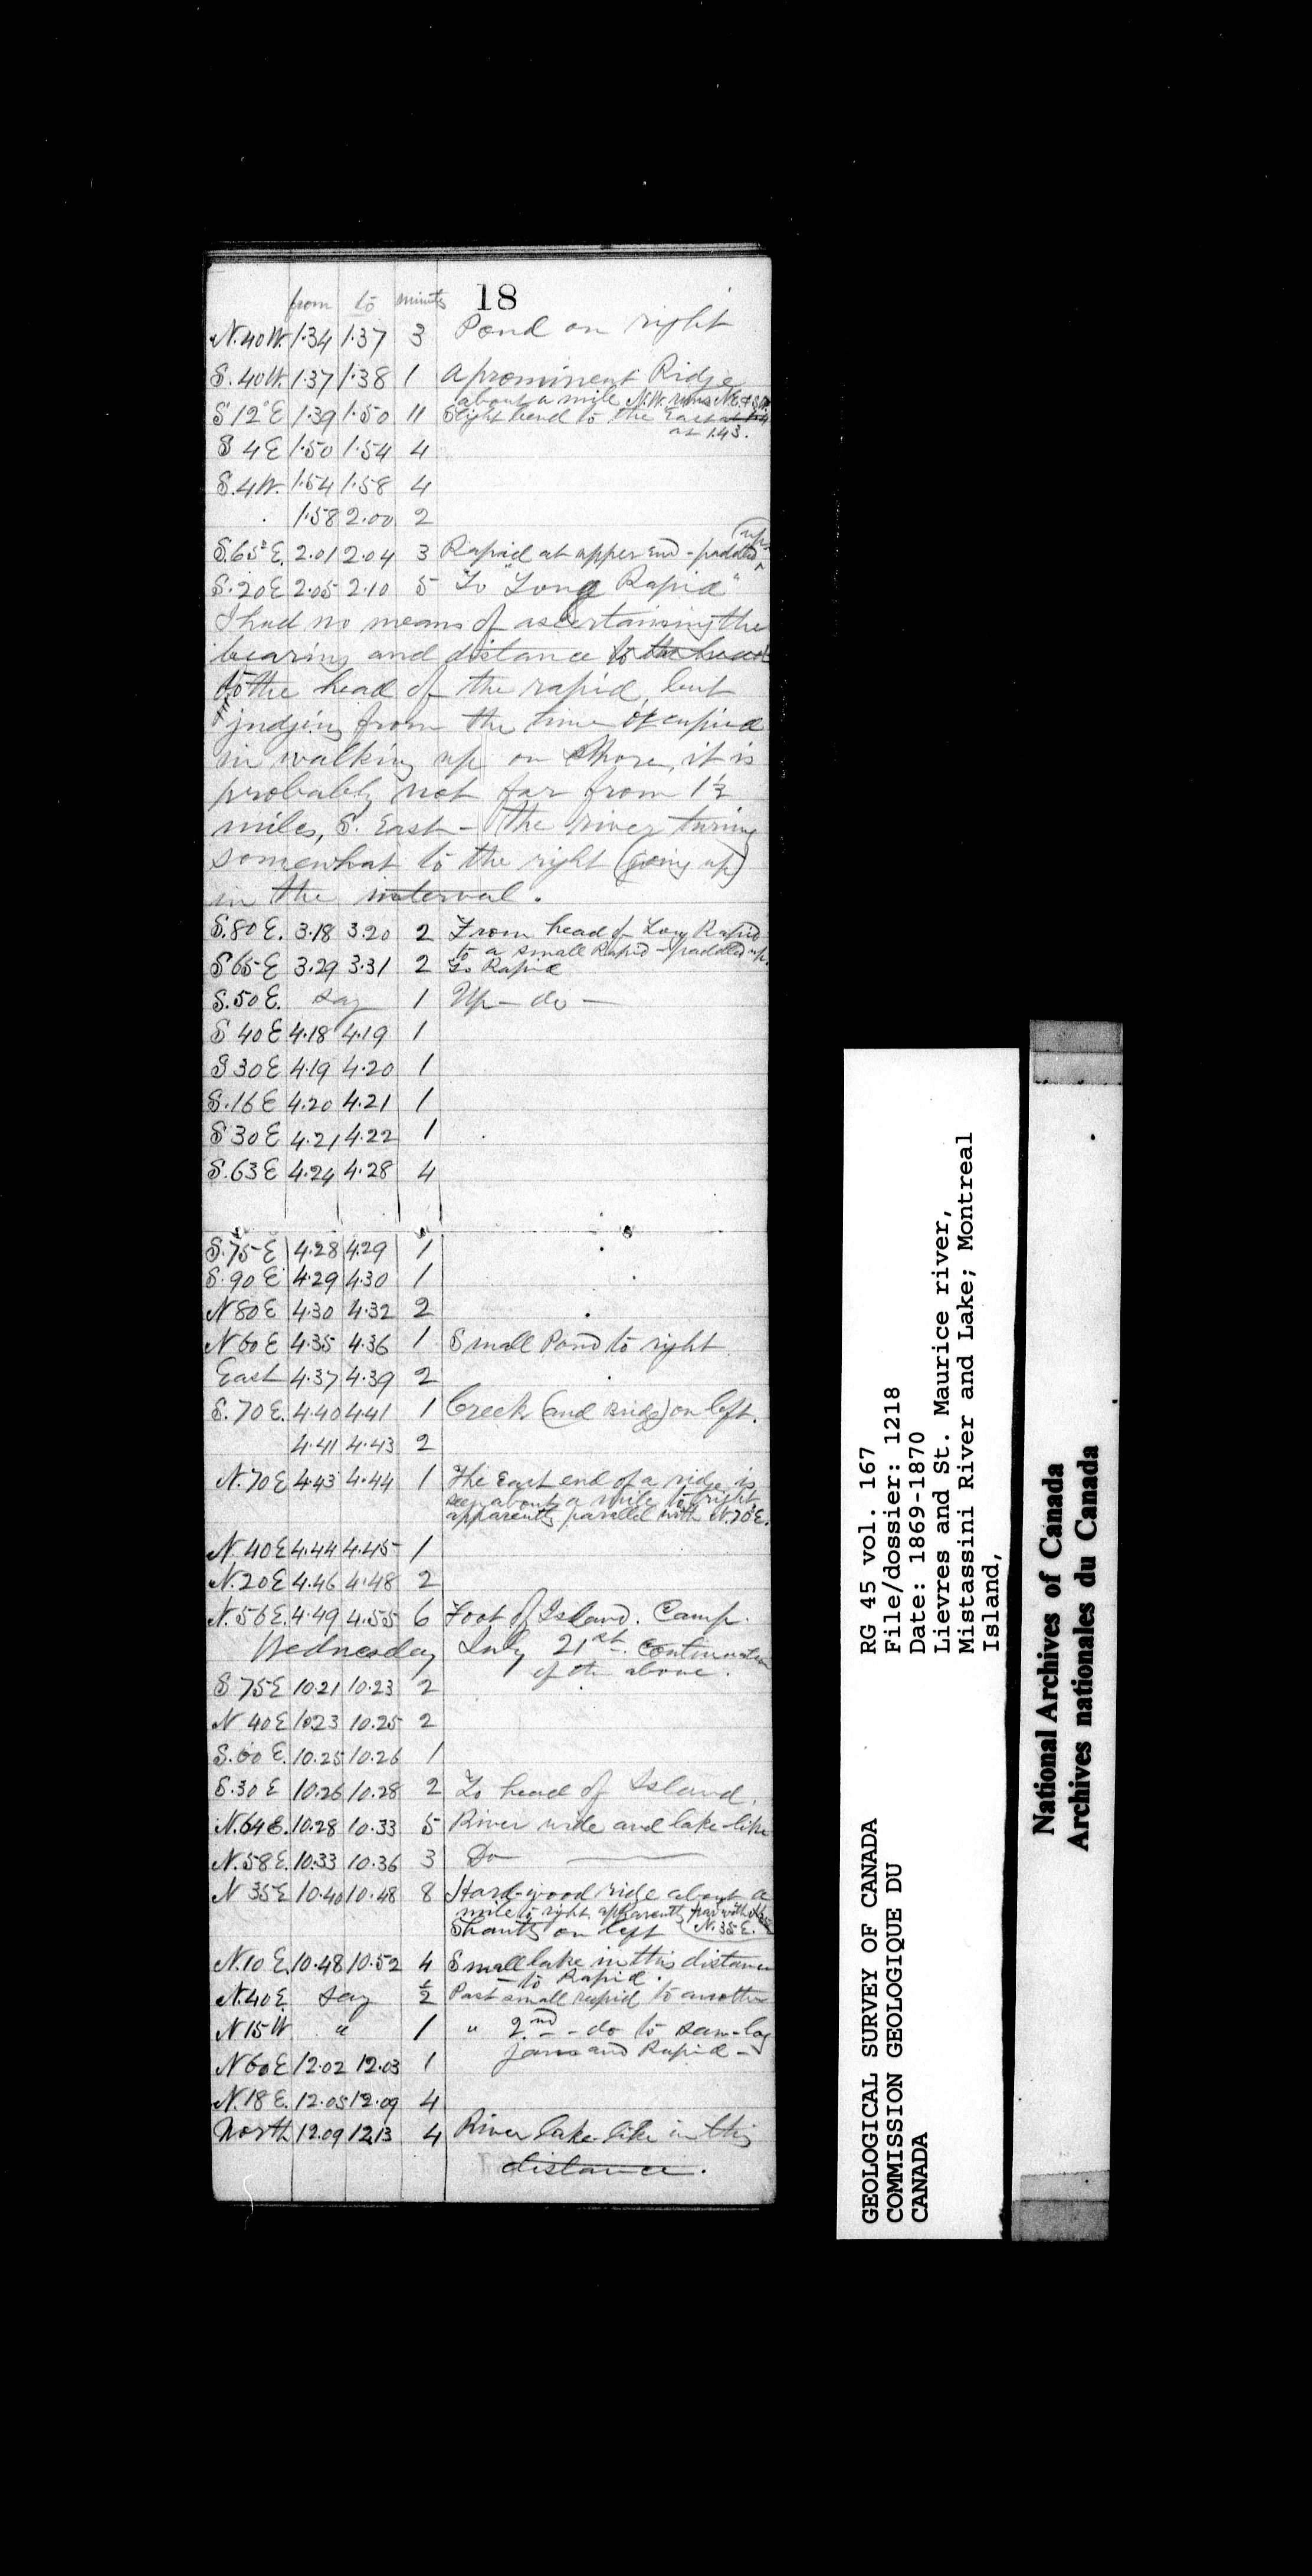 18
from to minutes
N.40W. 1.34 1.37 3 Pond on right
S.40W. 1.37 1.38 1 A prominent Ridge
about a mile N.W. runs N.E. & S.W.
S 12° E 1.39 1.50 11 Slight bend to the East at 1.4
at 1.43.
S 4 E 1.50 1.54 4
S.4W. 1.54 1.58 4
1.58 2.00 2
S.65° E. 2.01 2.04 3 Rapid at upper end - paddled up
S.20 E 2.05 2.10 5 To "Long Rapid"
I had no means of ascertaining the
bearing and distance to the head
to the head of the rapid, but
judging from the time occupied
in walking up on shore, it is
probably not far from 1½
miles, S. East - the river turning
somewhat to the right (going up)
in the interval.
S.80 E. 3.18 3.20 2 From head of Long Rapid
to a small Rapid - paddled up.
S 65 E 3.29 3.31 2 To Rapid
S.50 E. say 1 Up - do -
S 40 E 4.18 4.19 1
S 30 E 4.19 4.20 1
S.16 E 4.20 4.21 1
S 30 E 4.21 4.22 1
S.63 E 4.24 4.28 4
S.75 E 4.28 4.29 1
S.90 E 4.29 4.30 1
N 80 E 4.30 4.32 2
N 60 E 4.35 4.36 1 Small Pond to right
East 4.37 4.39 2
S. 70 E. 4.40 4.41 1 Creek (and ridge) on left.
4.41 4.43 2
N. 70 E 4.43 4.44 1 The East end of a ridge is
seen about a mile to right
apparently parallel with N.70°E.
N. 40 E 4.44 4.45 1
N. 20 E 4.46 4.48 2
N. 56 E. 4.49 4.55 6 Foot of Island. Camp.
Wednesday July 21st. Continuation
of the above.
S 75 E 10.21 10.23 2
N 40 E 10.23 10.25 2
S. 60 E. 10.25 10.26 1
S.30 E 10.26 10.28 2 To head of Island.
N. 64 E. 10.28 10.33 5 River wide and lake-like
N. 58 E. 10.33 10.36 3 Do
N 35 E 10.40 10.48 8 Hard-wood ridge about a
mile to right apparently par with
Shanty on left N. 35 E.
N.10 E. 10.48 10.52 4 Small lake in this distance
- to Rapid.
N.40 E. say ½ Past small rapid to another
N 15 W " 1 " 2nd - do to saw-log
jam and Rapid -
N 60 E 12.02 12.03 1
N. 18 E. 12.05 12.09 4
North 12.09 12.13 4 River lake-like in this
distance.
GEOLOGICAL SURVEY OF CANADA
COMMISSION GEOLOGIQUE DU
CANADA
RG 45 vol. 167
File/dossier: 1218
Date: 1869-1870
Lievres and St. Maurice river,
Mistassini River and Lake; Montreal
Island,
National Archives of Canada
Archives nationales du Canada